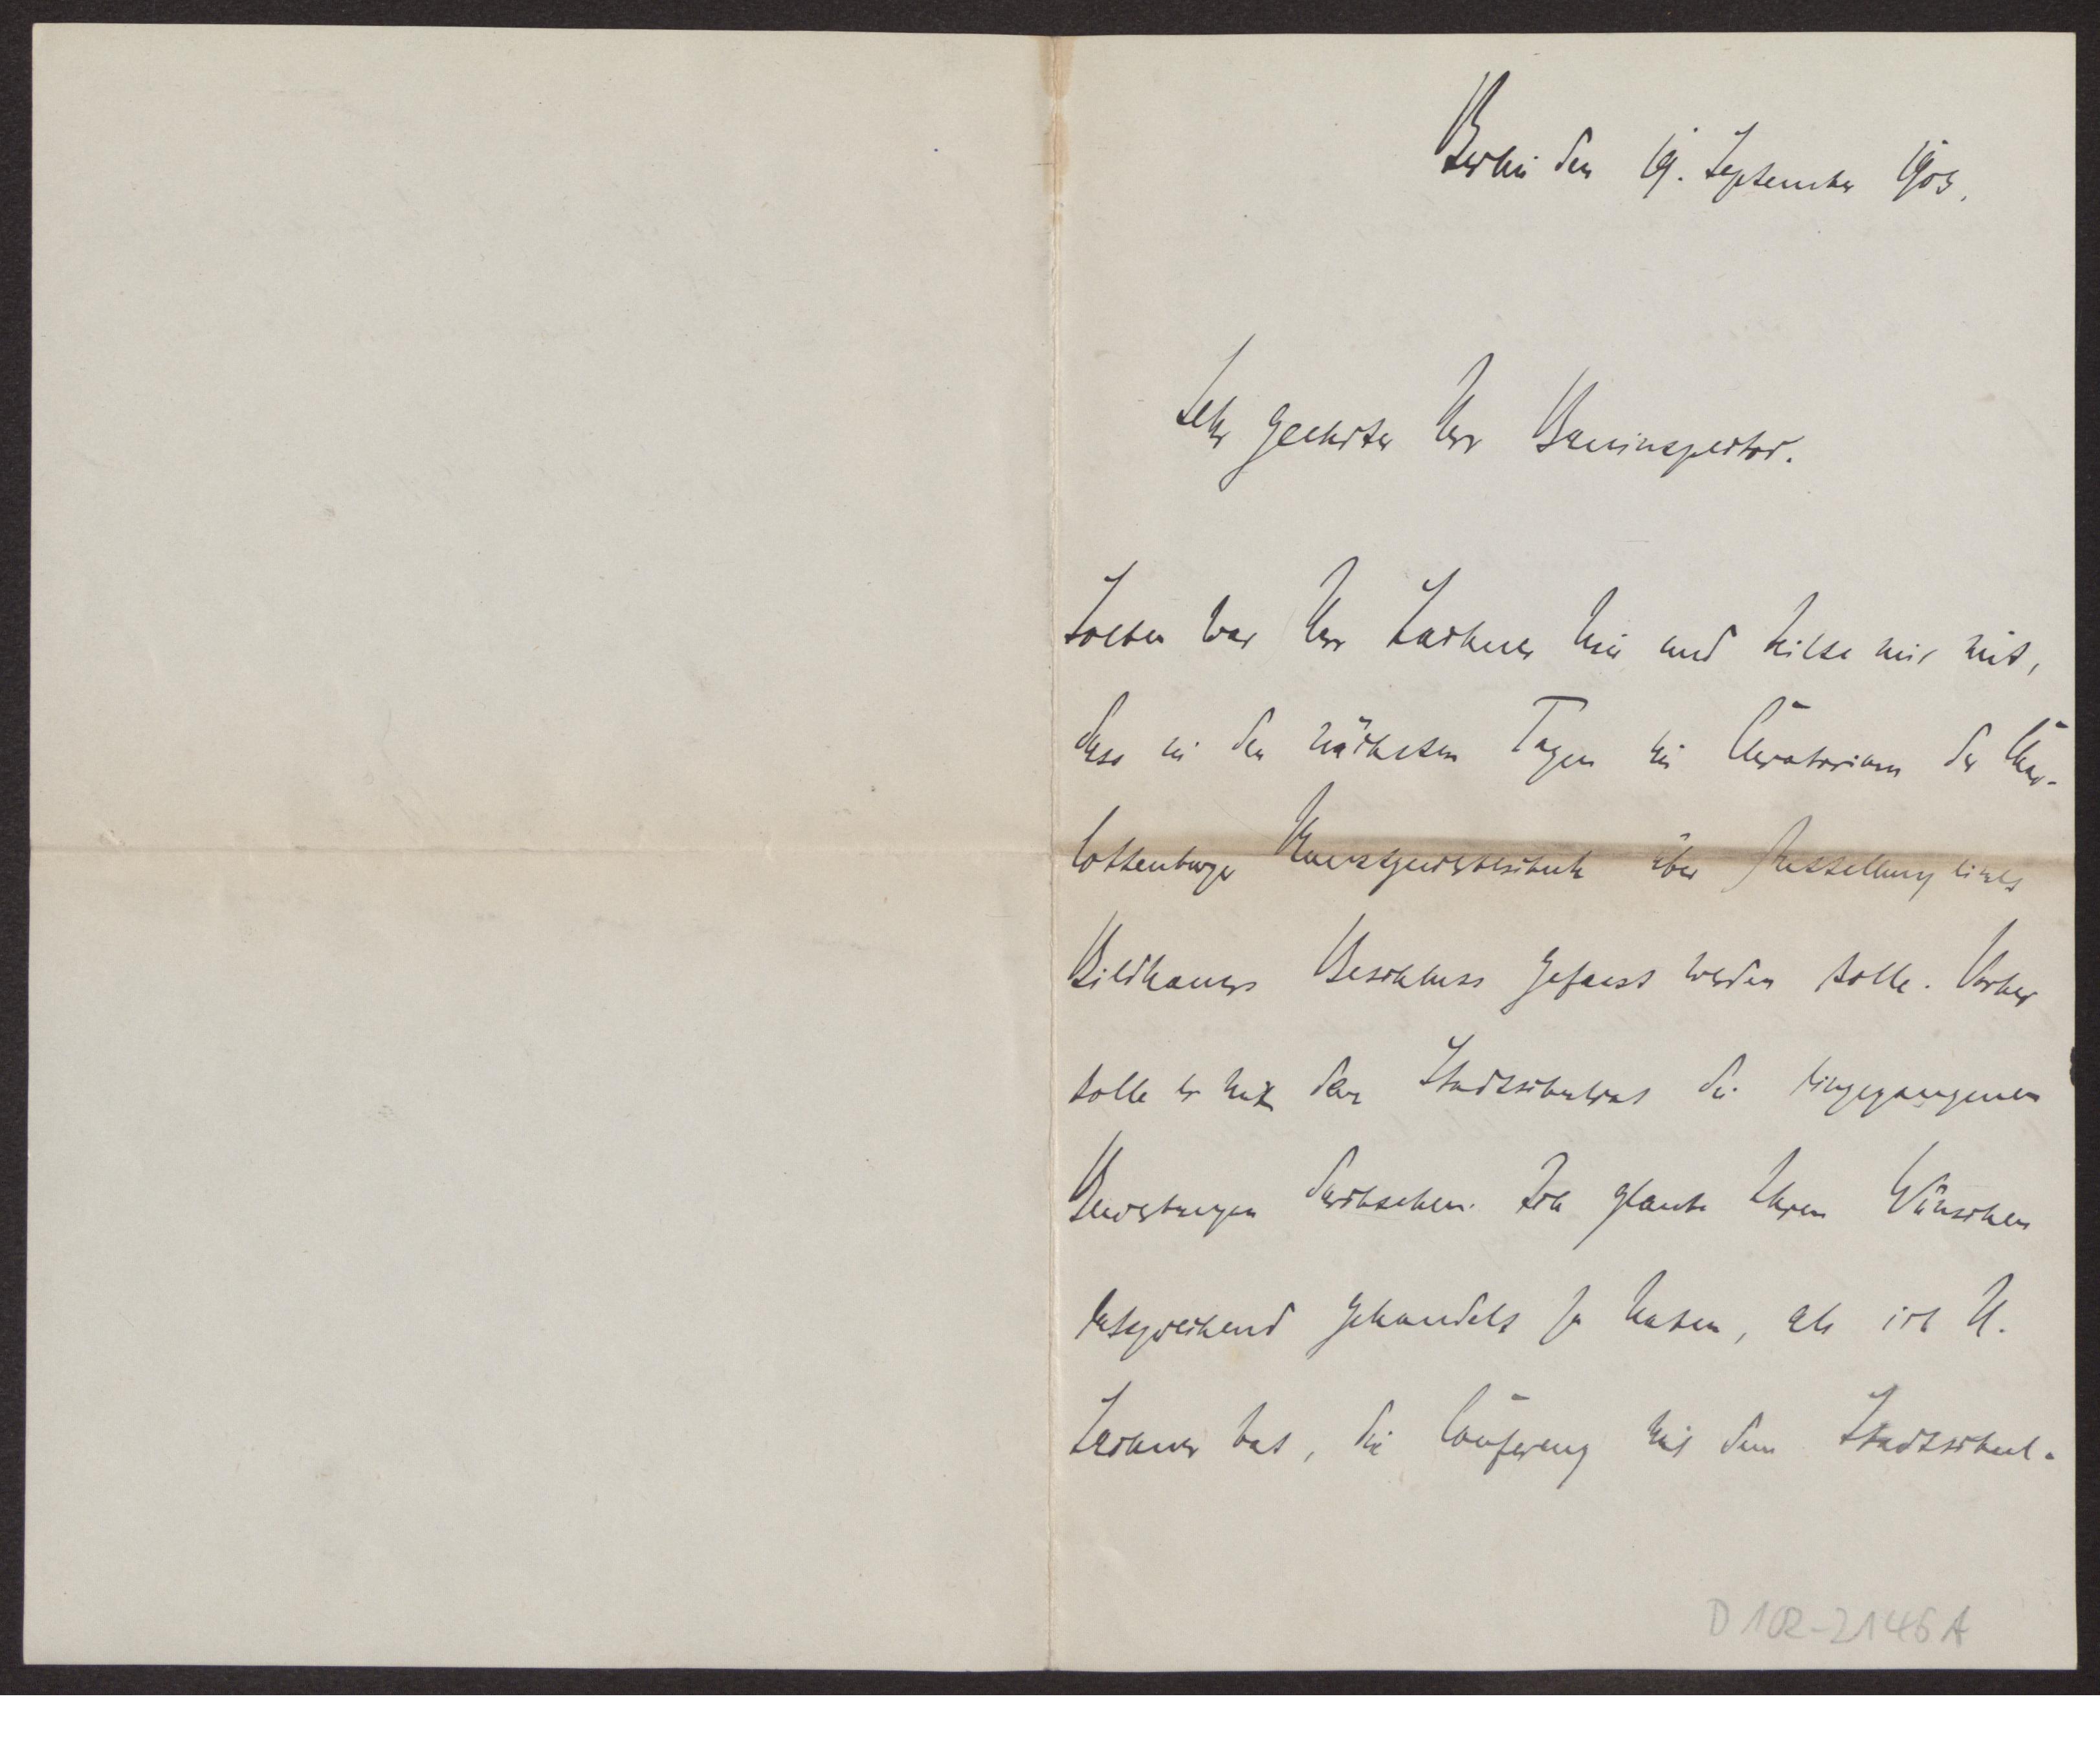 Berlin den 19. September 1903.
Sehr geehrter Herr Bauinspektor.
Soeben war Herr Lachner hier und teilte mir mit,
dass in den nächsten Tagen im Curatorium der Char-
lottenburger Kunstgewerbeschule über Anstellung eines
Bildhauers Beschluss gefasst werden solle. Vorher
solle er mit dem Stadtschulrat die eingegangenen
Bewerbungen durchsehen. Ich glaube Ihren Wünschen
entsprechend gehandelt zu haben, als ich H.
bat, die Conferenz mit dem Stadtschul-
D 102-2146 A